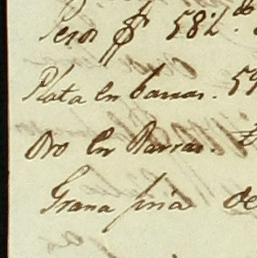 Pesos $ 582.
Plata en barras. 59
Oro en Barras.
Grana fina de